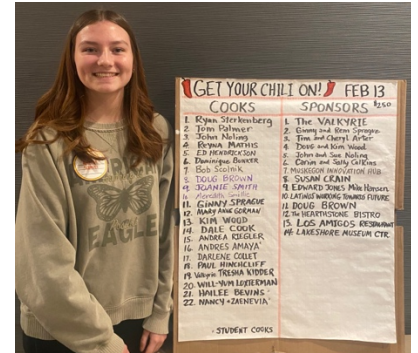 GET YOUR CHILI ON! FEB 13
COOKS
1. Ryan Sterkenberg
2. Tom Palmer
3. John Noling
4. REYNA MATHIS
5. ED HENDRICKSON
6. Dominique Bunker
7. Bob Scolnik
8. DOUG BROWN
9. JUANIE SMITH
10. Meredith Smillie
11. GINNY SPRAGUE
12. MARY ANNE GORMAN
13. KIM WOOD
14. DALE COOK
15. ANDREA RIEGLER
16. ANDRES AMAYA
17. DARLENE COLLET
18. PAUL HINCHCLIFF
19. Valkyrie TRESHA KIDDER
20. WILL-YUM LOXTERMAN
21. HAILEE BEVINS
22. NANCY "ZAENEVIA"
- STUDENT COOKS
SPONSORS $250
1. The VALKYRIE
2. Ginny and Rem Sprague
3. Tim and Cheryl Arter
4. Doug and Kim Wood
5. John and Sue Noling
6. and Sally Calkins
7. MUSKEGON INNOVATION HUB
8. SUSAN CRAIN
9. EDWARD JONES Mike Hansen
10. LATINOS WORKING TOWARDS FUTURE
11. DOUG BROWN
12. The HEARTHSTONE BISTRO
13. LOS AMIGOS RESTAURANT
14. LAKESHORE MUSEUM CTR.
EAGLE